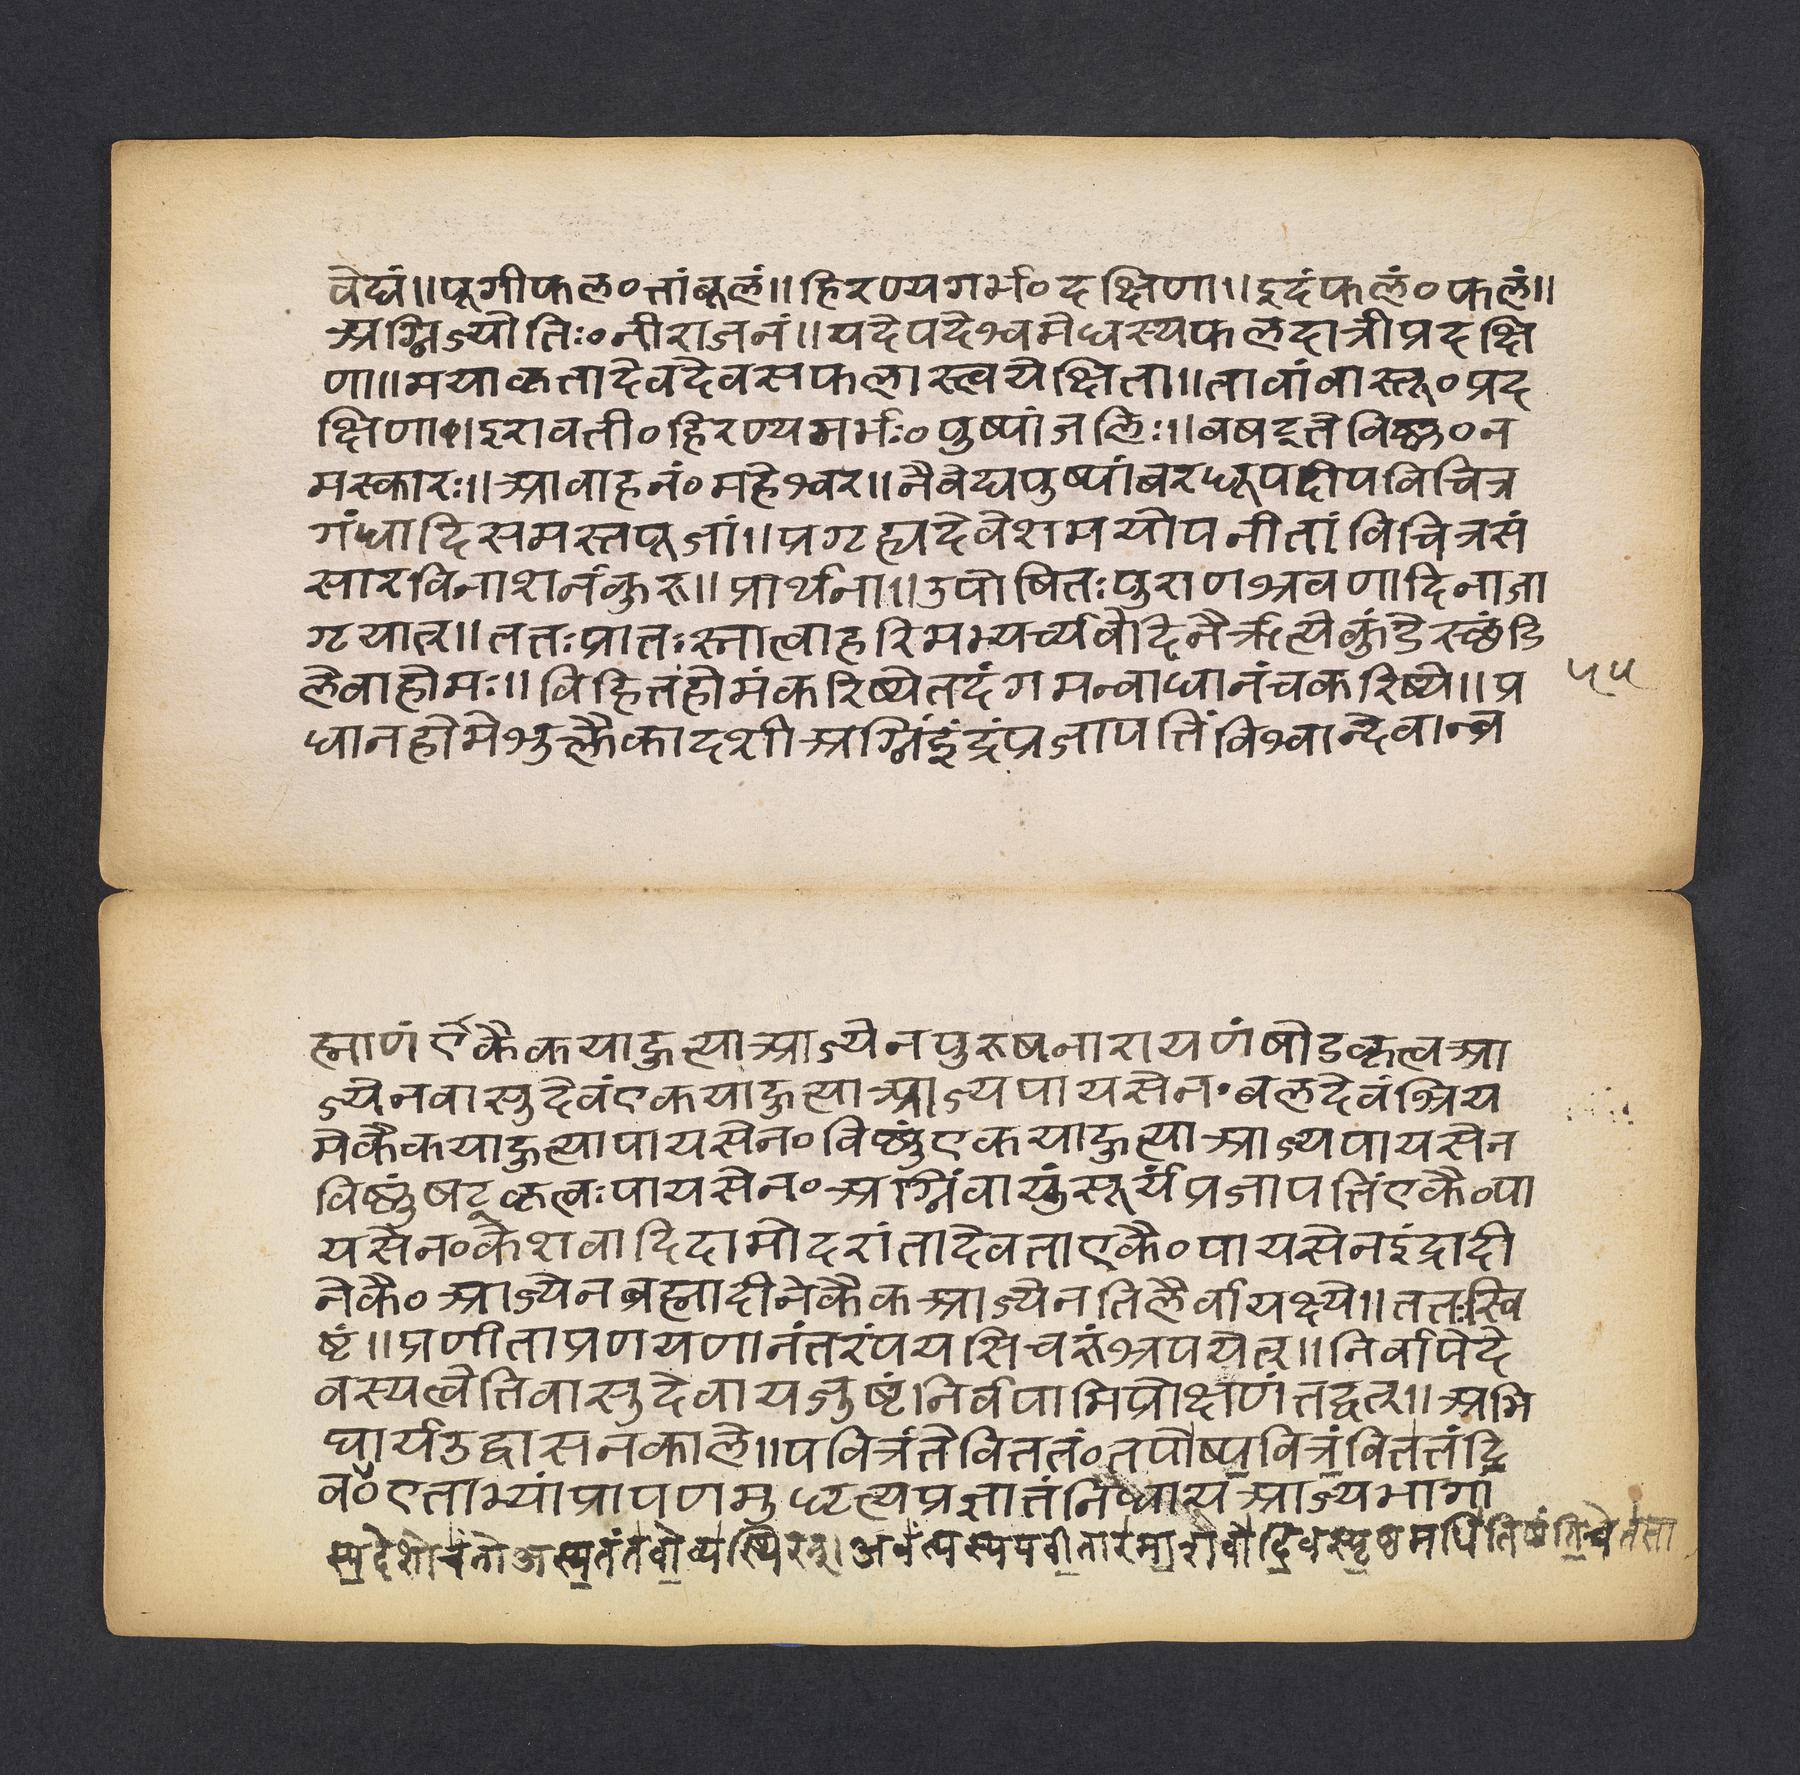 वेद्यं॥पूगीफल०तांबूलं॥हिरण्यगर्भ०दक्षिणा॥इदंफलं०फलं॥
अग्निज्योतिः०नीराजनं॥यदेपदेश्वमेधस्यफलदात्रीप्रदक्षि
णा॥मयाकृतादेवदेवसफलास्त्वयेक्षिता॥तावांवास्तू०प्रद
क्षिणा॥इरावती०हिरण्यगर्भः०पुष्पांजलिः॥वषट्तेविष्णु०न
मस्कारः॥आवाहनं०महेश्वर॥नैवेद्यपुष्पांबरधूपदीपविचित्र
गंधादिसमस्तपूजां॥प्रगृह्यदेवेशमयोपनीतांविचित्रसं
सारविनाशनंकुरु॥प्रार्थना॥उपोषितःपुराणश्रवणादिनाजा
गृयात्॥ततःप्रातःस्नात्वाहरिमभ्यर्च्यवेदिनैर्ऋत्येकुंडेस्छंडि
लेवाहोमः॥विहितंहोमंकरिष्येतदंगमन्वाधानंचकरिष्ये॥प्र
५५
धानहोमेशुक्लैकादशीअग्निंइंद्रंप्रजापतिंविश्वान्देवान्ब्र
ह्माणंएकैकयाहुत्याआज्येनपुरुषनारायणंषोडकृत्वआ
ज्येनवासुदेवंएकयाहुत्याआज्यपायसेन०बलदेवंश्रिय
मेकैकयाहुत्यापायसेन०विष्णुंएकयाहुत्याआज्यपायसेन
विष्णुंषट्कृत्वःपायसेन०अग्निंवायुंसूर्यंप्रजापतिंएकै०पा
यसेन०केशवादिदामोदरांतादेवताएकै०पायसेनइंद्रादी
नेकै०आज्येनब्रह्मादीनेकैकआज्येनतिलैर्वायक्ष्ये॥ततःस्वि
ष्टं॥प्रणीताप्रणयणानंतरंपयसिचरुंश्रपयेत्॥निर्वापेदे
वस्यत्वेतिवासुदेवायजुष्टंनिर्वपामिप्रोक्षणंतद्वत्॥अभि
घार्यउद्वासनकाले॥पवित्रंतेविततं०तपोष्पवित्रंविततंदि
व०एताभ्यांप्रापणमुधृत्यप्रज्ञातंनिधायआज्यभागां
स्पदेशोचंतोअस्यतंतवोव्यस्थिरन्।अवंत्यस्यपवीतारमाशवोदिवस्पृष्ठमधितिष्ठंतिचेतसा